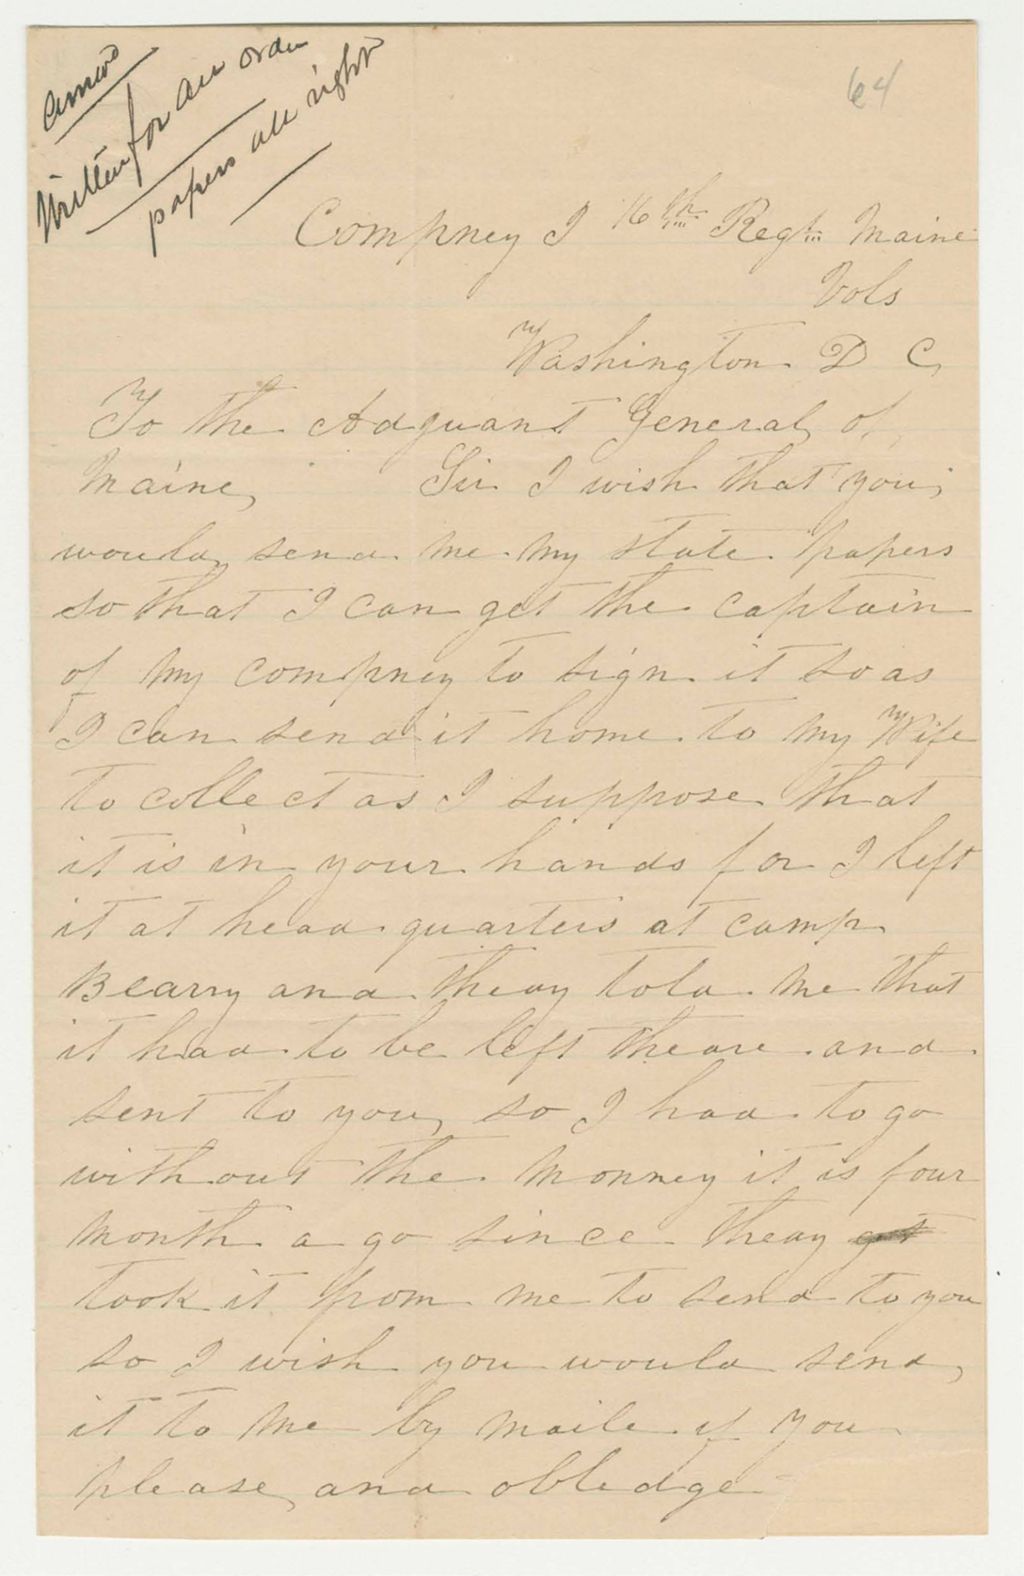 Answd
Written for an order
papers all right
64
Compney I 16th Regt Maine
Vols
Washington D C,
To the Adguant General of
Maine, Sir I wish that you,
would send me my state papers
so that I can get the captain
of my compney to sign it so as
I can send it home to my Wife
to collect as I suppose that
it is in your hands for I left
it at head quarters at camp
Bearry and theay told me that
it had to be left theare and
sent to you, so I had to go
without the monney it is four
month a go since theay got
took it from me to send to you
so I wish you would send,
it to me by maile if you
please, and obledge